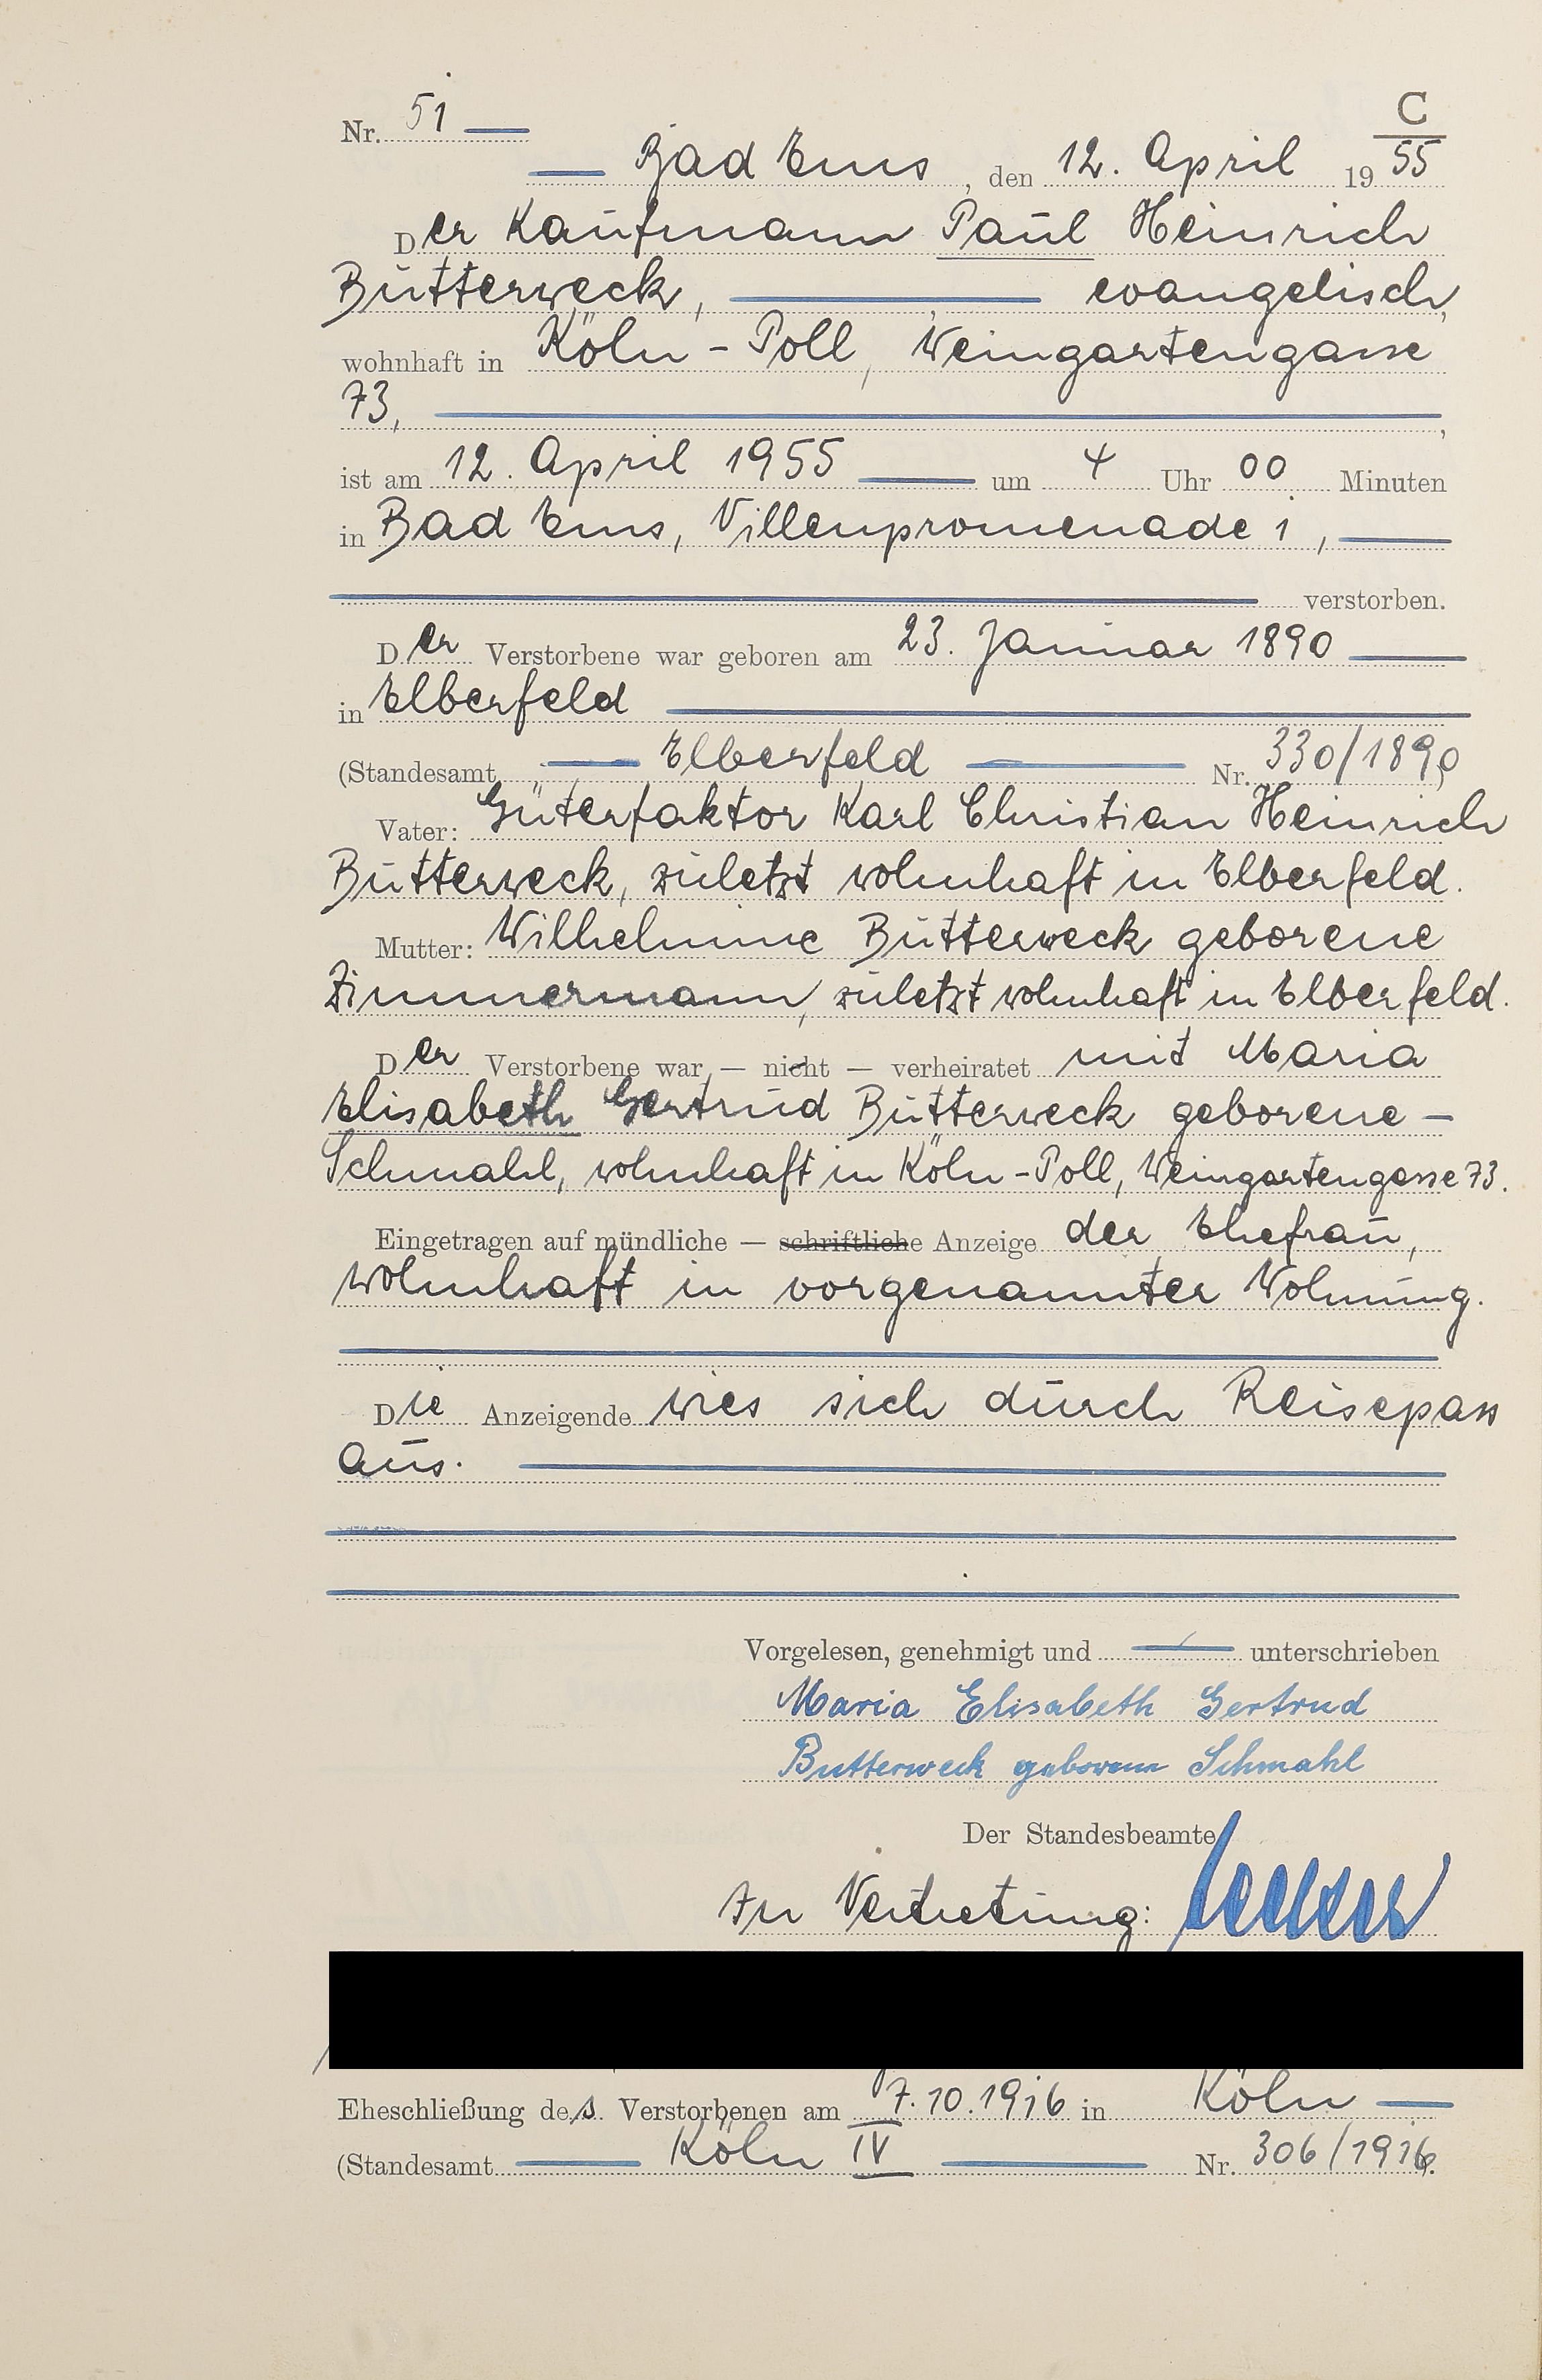 C
Nr. 51
Bad Ems, den 12. April 1955
Der Kaufmann Paul Heinrich
Butterweck, evangelisch,
wohnhaft in Köln - Poll, Weingartengasse
73,
ist am 12. April 1955 um 4 Uhr 00 Minuten
in Bad Ems, Villenpromenade 1,
verstorben.
Der Verstorbene war geboren am 23. Januar 1890
in Elberfeld
(Standesamt Elberfeld Nr. 330/1890)
Vater: Güterfaktor Karl Christian Heinrich
Butterweck, zuletzt wohnhaft in Elberfeld.
Mutter: Wilhelmine Butterweck geborene
Zimmermann, zuletzt wohnhaft in Elberfeld.
Der Verstorbene war — nicht — verheiratet mit Maria
Elisabeth Gertrud Butterweck geborene -
Schmahl, wohnhaft in Köln - Poll, Weingartengasse 73.
Eingetragen auf mündliche — schriftliche Anzeige der Ehefrau,
wohnhaft in vorgenannter Wohnung.
Die Anzeigende wies sich durch Reisepass
aus.
Vorgelesen, genehmigt und unterschrieben
Maria Elisabeth Gertrud
Butterweck geborene Schmahl
Der Standesbeamte
In Vertretung:
Eheschließung des Verstorbenen am 7.10.1916 in Köln
(Standesamt Köln IV Nr. 306/1916.